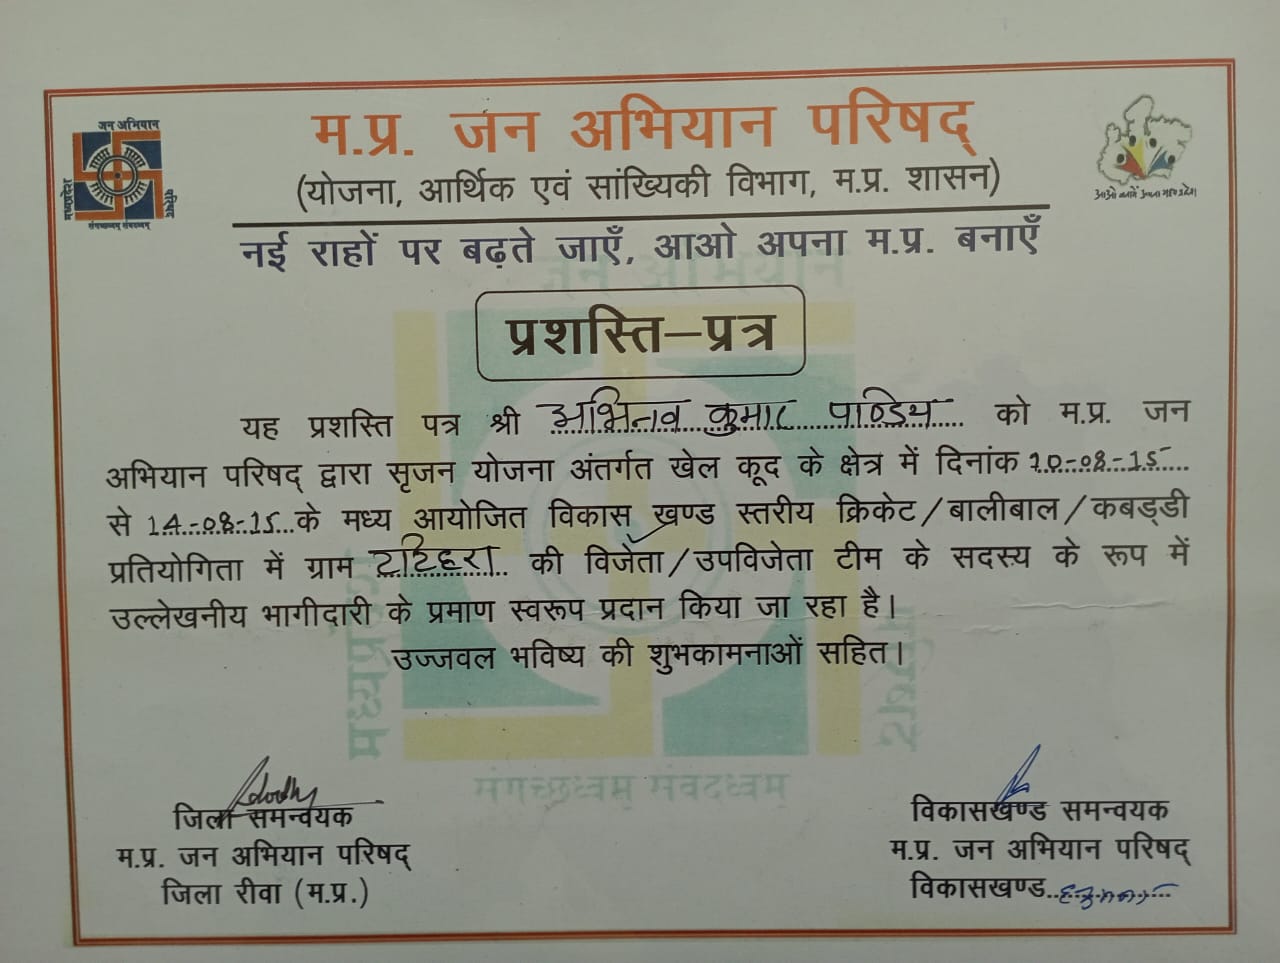 जन अभियान
मध्यप्रदेश
परिषद
संगच्छध्वम् संवदध्वम्
म.प्र. जन अभियान परिषद्
(योजना, आर्थिक एवं सांख्यिकी विभाग, म.प्र. शासन)
नई राहों पर बढ़ते जाएँ, आओ अपना म.प्र. बनाएँ
आओ बनायें अपना मध्यप्रदेश
प्रशस्ति–प्रत्र
यह प्रशस्ति पत्र श्री अभिनव कुमार पाण्डेय को म.प्र. जन
अभियान परिषद् द्वारा सृजन योजना अंतर्गत खेल कूद के क्षेत्र में दिनांक 10-08-15
से 14-08-15 के मध्य आयोजित विकास खण्ड स्तरीय क्रिकेट/बालीबाल/कबड्डी
प्रतियोगिता में ग्राम टटिहरा की विजेता/उपविजेता टीम के सदस्य के रूप में
उल्लेखनीय भागीदारी के प्रमाण स्वरूप प्रदान किया जा रहा है।
उज्जवल भविष्य की शुभकामनाओं सहित।
जन अभियान
मध्यप्रदेश
परिषद
संगच्छध्वम् संवदध्वम्
जिला समन्वयक
म.प्र. जन अभियान परिषद्
जिला रीवा (म.प्र.)
विकासखण्ड समन्वयक
म.प्र. जन अभियान परिषद्
विकासखण्ड हनुमना